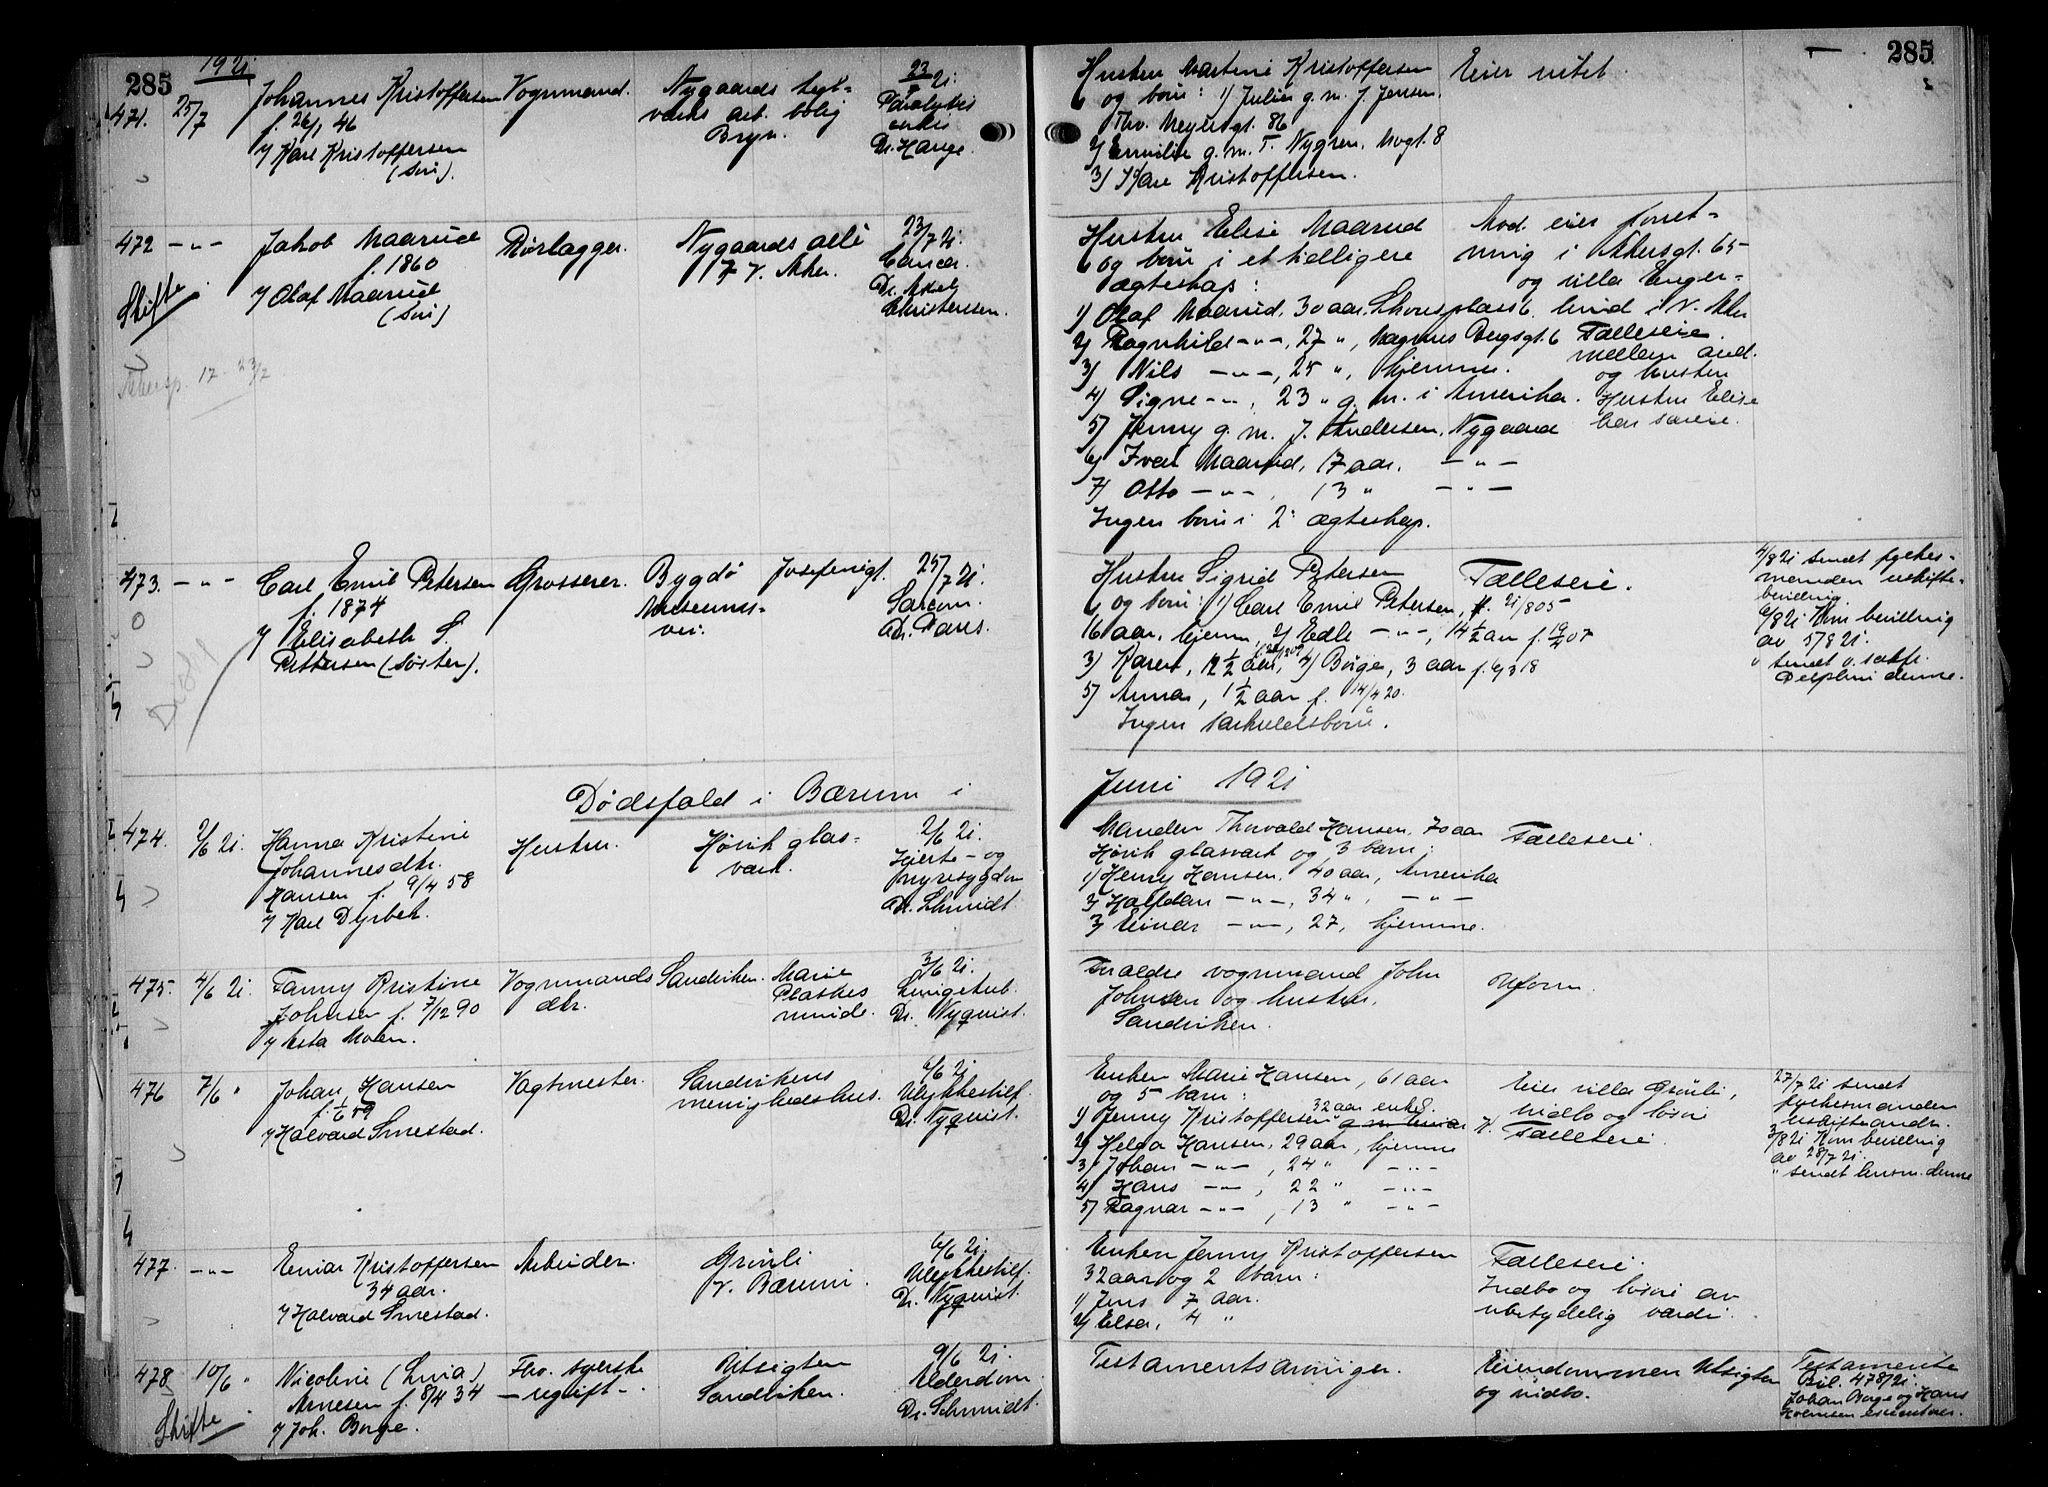 285
1921
471.
25/7
Johannes Kristoffersen
f. 26/1 46
v/ Karl Kristoffersen
(søn).
Vognmand.
Nygaards
arb. bolig
Bryn.
23/7 21
Paralysis
Dr. Hauge.
472 -"-
Skifte
Jakob Maarud
f. 1860
v/ Olaf Maarud
(søn)
Rørlægger.
Nygaards allé
17 V. Aker.
23/7 21.
Cancer.
Dr. Aksel
Christensen.
Akersp. 17 - 23/7
473. -"-
Carl Emil Petersen
f. 1874
v/ Elisabeth S.
Pettersen (søster).
Grosserer.
Bygdø
Museums-
vei.
Josefinegt.
25/7 21.
Sarcom.
Dr. Paus.
Dødsfald i Bærum i
474.
2/6 21.
Hanna Kristine
Johannesdtr.
Hansen f. 9/4 58
v/ Karl Dyrbek.
Hustru.
Høvik glas-
værk.
2/6 21.
Hjerte- og
nyresygdom
Dr. Schmidt
475.
4/6 21.
Fanny Kristine
Johnsen f. 7/12 90
v/ Asta Moen.
Vognmands
dtr.
Sandviken.
Marie
Plathes
minde.
3/6 21.
Lungetub.
Dr. Nyquist.
476
7/6 "
Johan Hansen
f. 1/6 59
v/ Halvard Smestad.
Vagtmester.
Sandvikens
menighedshus.
6/6 21
Ulykkestilf.
Dr. Nyquist.
477. -"-
Einar Kristoffersen
34 aar.
v/ Halvard Smestad.
Arbeider.
Grinili
V. Bærum.
6/6 21.
Ulykkestilf.
Dr. Nyquist.
478
10/6 "
Skifte
Nicoline (Lina)
Arnesen f. 8/4 34
v/ Joh. Borge.
Fhv. syerske
- ugift -
Utsigten
Sandviken.
9/6 21.
Alderdom.
Dr. Schmidt.
285
Hustru Martine Kristoffersen
og børn: 1) Julie g. m. J. Jensen.
Thv. Meyersgt. 86
2) Emilie g. m. T. Nygren, Mogt. 8
3) Karl Kristoffersen.
Eier intet.
Hustru Elise Maarud
og børn i et tidligere
ægteskap:
1) Olaf Maarud, 30 aar, Schousplass 6.
2) Ragnhild -"-, 27 ", Magnus Bergsgt. 6
3) Nils -"-, 25 ", hjemme.
4) Signe -"-, 23 " g. m. i Amerika.
5) Jenny g. m. J. Andersen, Nygaard
6) Ivar Maarud, 17 aar. -"-
7) Otto -"-, 13 " -"-
Ingen børn i 2. ægteskap.
Avd. eier forret-
ning i Akersgt. 65
og villa Enger-
lund i V. Aker
Fælleseie
mellem avd.
og hustru
Hustru Elise
har særeie.
Hustru Sigrid Petersen
og børn: 1) Carl Emil Petersen, f. 21/8 05
16 aar, hjemme, 2) Edle -"-, 14 1/2 aar f. 19/2 07
3) Karen, 12 1/2 aar, 4) Børge, 3 aar f. 6/3 18
5) Anna, 1 1/2 aar f. 14/4 20.
Ingen særkuldsbørn.
Fælleseie.
4/8 21 sendt sydes-
manden uskifte-
bevilling
6/8 21 Kom bevilling
av 5/8 21.
" sendt o.
Delphin denne.
Juni 1921
Manden Thorvald Hansen, 70 aar
Høvik glasværk og 3 barn:
1) Henry Hansen, 40 aar, Amerika
2) Halfdan -"-, 34 ", -"-
3) Einar -"-, 27, hjemme.
Fælleseie.
Forældre vognmand John
Johnsen og hustru,
Sandviken.
Uform.
Enken Marie Hansen, 61 aar
og 5 barn:
1) Jenny Kristoffersen 32 aar enke.
2) Helga Hansen, 29 aar, hjemme
3) Johan -"-, 24 " -"-
4) Hans -"-, 22 " -"-
5) Ragnar -"-, 13 " -"-
Eier villa Grinili,
indbo og løsøre
Fælleseie.
27/7 21 sendt
sydesmanden
uskifteandr.
3/8 21 Kom bevilling
av 28/7 21.
" sendt lensm. denne
Enken Jenny Kristoffersen
32 aar og 2 barn:
1) Jens 7 aar.
2) Elsa, 4 "
Fælleseie.
Indbo og løsøre av
ubetydelig værdi.
Testamentsarvinger.
Eiendommen Utsigten
og indbo.
Testamente
Bil. 478/21.
Johan Borge og Hans
Holmsen executorer.